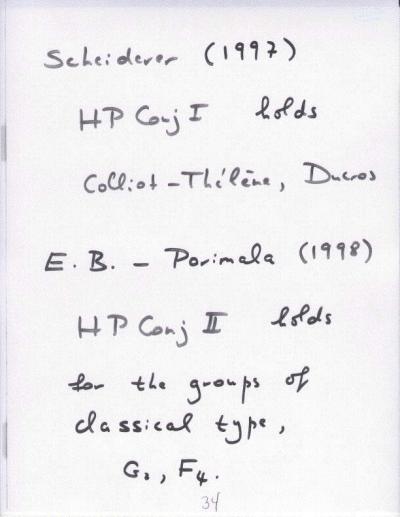 Scheiderer (1997)
HP Conj I holds
Colliot-Thélène, Ducros
E. B. - Parimala (1998)
HP Conj II holds
for the groups of
classical type,
G₂, F₄.
34